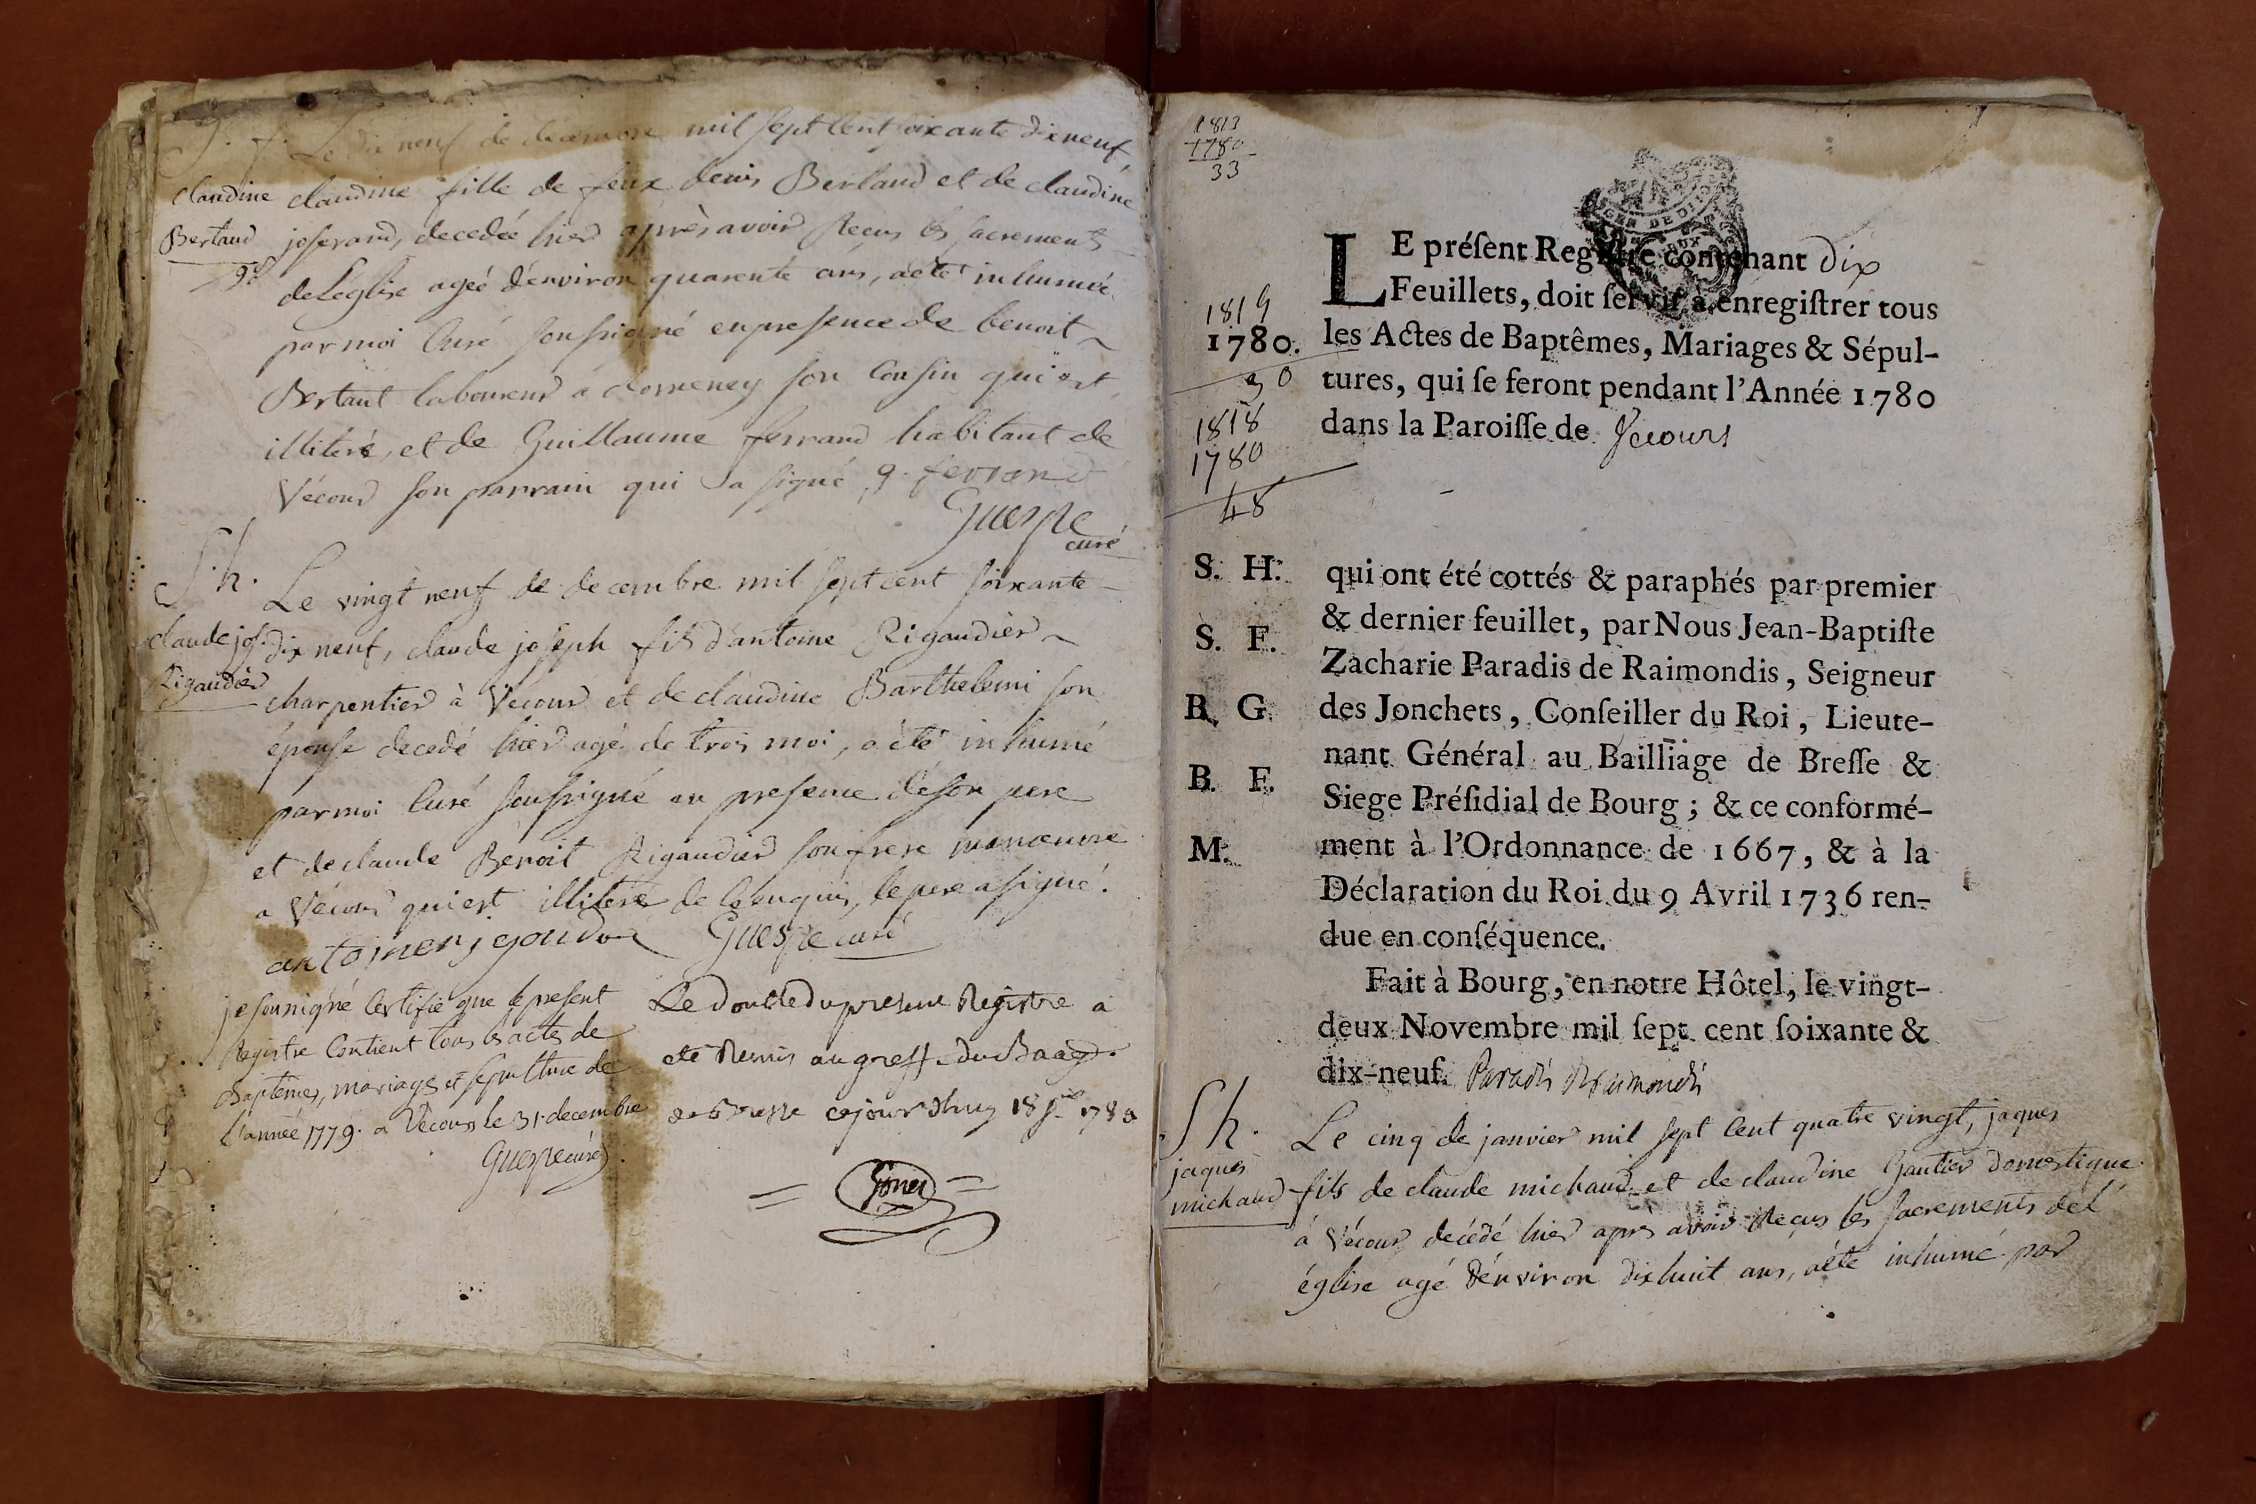 S. f. Le dix neuf de decembre mil sept cent soixante dix neuf
claudine
Bertaud
claudine fille de feux denis Bertaud et de claudine
joserand, decedée hier après avoir reçus les sacrements
de L'eglise ageé d'environ quarente ans, a été inhumée
par moi Curé soussigné en presence de benoit
Bertaut laboureur a cormency son Cousin qui est
illiteré, et de Guillaume ferrand habitant de
Vécour son parrain qui a signé, g. ferrand
Guespe
curé
S. h.
claude jos.
Rigaudier
Le vingt neuf de decembre mil sept cent soixante
dix neuf, claude joseph fils d'antoine Rigaudier
charpentier à Vécour et de claudine Barthelemi son
épouse decedé hier agé de trois moi, a été inhumé
par moi Curé soussigné en presence de son pere
et de claude Benoit Rigaudier son frere manoeuvre
a Vécour qui est illiteré de ce enquis, le pere a signé.
antoine rigoudier Guespe curé
je sousigné Certifie que le present
Registre Contient tous les actes de
Baptêmes, mariages et sepulture de
l'année 1779. a Vecours le 31. decembre
Guespe curé
Le double du present Registre a
eté Remis au greffe du Baage
de Bresse ce jourdhuy 18 1780
1813
1780
33
1819
1780.
30
1818
1780
48
LE préſent Regiſtre contenant dix
Feuillets, doit ſervir à enregiſtrer tous
les Actes de Baptêmes, Mariages & Sépul-
tures, qui ſe feront pendant l'Année 1780
dans la Paroiſſe de Vecours
S. H.
S. F.
B. G.
B. F.
M.
qui ont été cottés & paraphés par premier
& dernier feuillet, par Nous Jean-Baptiſte
Zacharie Paradis de Raimondis, Seigneur
des Jonchets, Conſeiller du Roi, Lieute-
nant Général au Bailliage de Breſſe &
Siege Préſidial de Bourg; & ce conformé-
ment à l'Ordonnance de 1667, & à la
Déclaration du Roi du 9 Avril 1736 ren-
due en conſéquence.
Fait à Bourg, en notre Hôtel, le vingt-
deux Novembre mil ſept cent ſoixante &
dix-neuf. Paradis Raimondis
S h.
jaques
michaud
Le cinq de janvier mil sept cent quatre vingt, jaques
fils de claude michaud et de claudine Gautier domestique
à Vécour decédé hier apres avoir reçus les sacrements de l'
église agé d'environ dixhuit ans, a été inhumé par